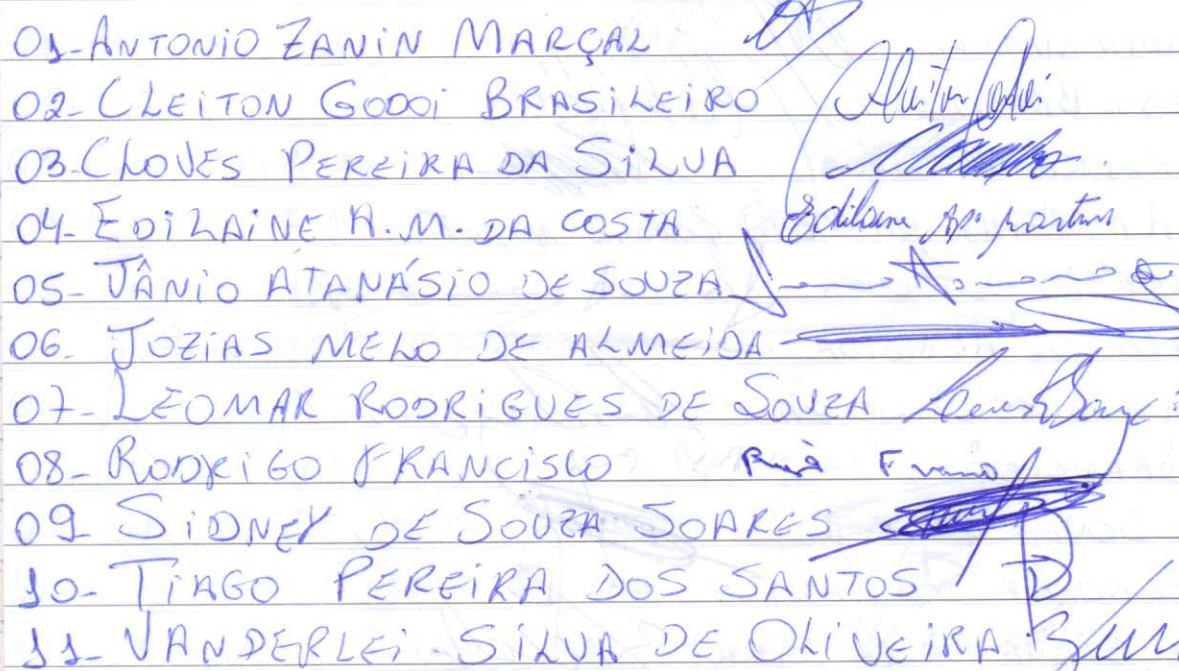 01- ANTONIO ZANIN MARÇAL
02- CLEITON GODOI BRASILEIRO Cleiton Godoi
03- CLOVES PEREIRA DA SILVA
04- EDILAINE A.M. DA COSTA Edilaine Ap. Martins
05- JÂNIO ATANÁSIO DE SOUZA
06- JOZIAS MELO DE ALMEIDA
07- LEOMAR RODRIGUES DE SOUZA
08- RODRIGO FRANCISCO
09- SIDNEY DE SOUZA SOARES
10- TIAGO PEREIRA DOS SANTOS
11- VANDERLEI SILVA DE OLIVEIRA